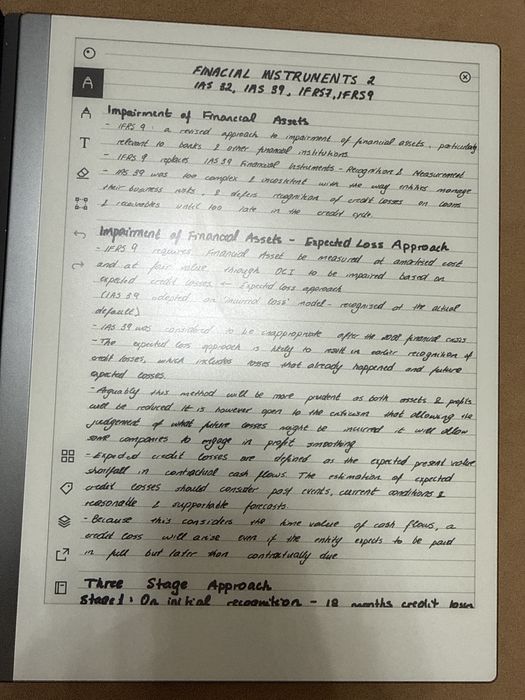 FINACIAL INSTRUMENTS 2
IAS 32, IAS 39, IFRS7, IFRS9
Impairment of Financial Assets
- IFRS 9: a revised approach to impairment of financial assets, particularly
relevant to banks & other financial institutions
- IFRS 9 replaces IAS 39 Financial Instruments - Recognition & Measurement
- IAS 39 was too complex & inconsistent with the way entities manage
their business risks, & defers recognition of credit losses on loans
& receivables until too late in the credit cycle.
Impairment of Financial Assets - Expected Loss Approach
- IFRS 9 requires Financial Asset be measured at amortised cost
and at fair value through OCI to be impaired based on
expected credit losses ← Expected loss approach
(IAS 39 adopted an 'incurred loss' model - recognised at the actual
default)
- IAS 39 was considered to be inappropriate after the financial crisis
- The expected loss approach is likely to result in earlier recognition of
credit losses, which includes losses that already happened and future
expected losses.
- Arguably this method will be more prudent as both assets & profits
will be reduced it is however open to the criticism that allowing the
judgement of what future losses might be incurred it will allow
some companies to engage in profit smoothing
- Expected credit losses are defined as the expected present value
shortfall in contractual cash flows. The estimation of expected
credit losses should consider past events, current conditions &
reasonable & supportable forecasts.
- Because this considers the time value of cash flows, a
credit loss will arise even if the entity expects to be paid
in full but later than contractually due
Three Stage Approach
Stage 1: On initial recognition - 12 months credit losses